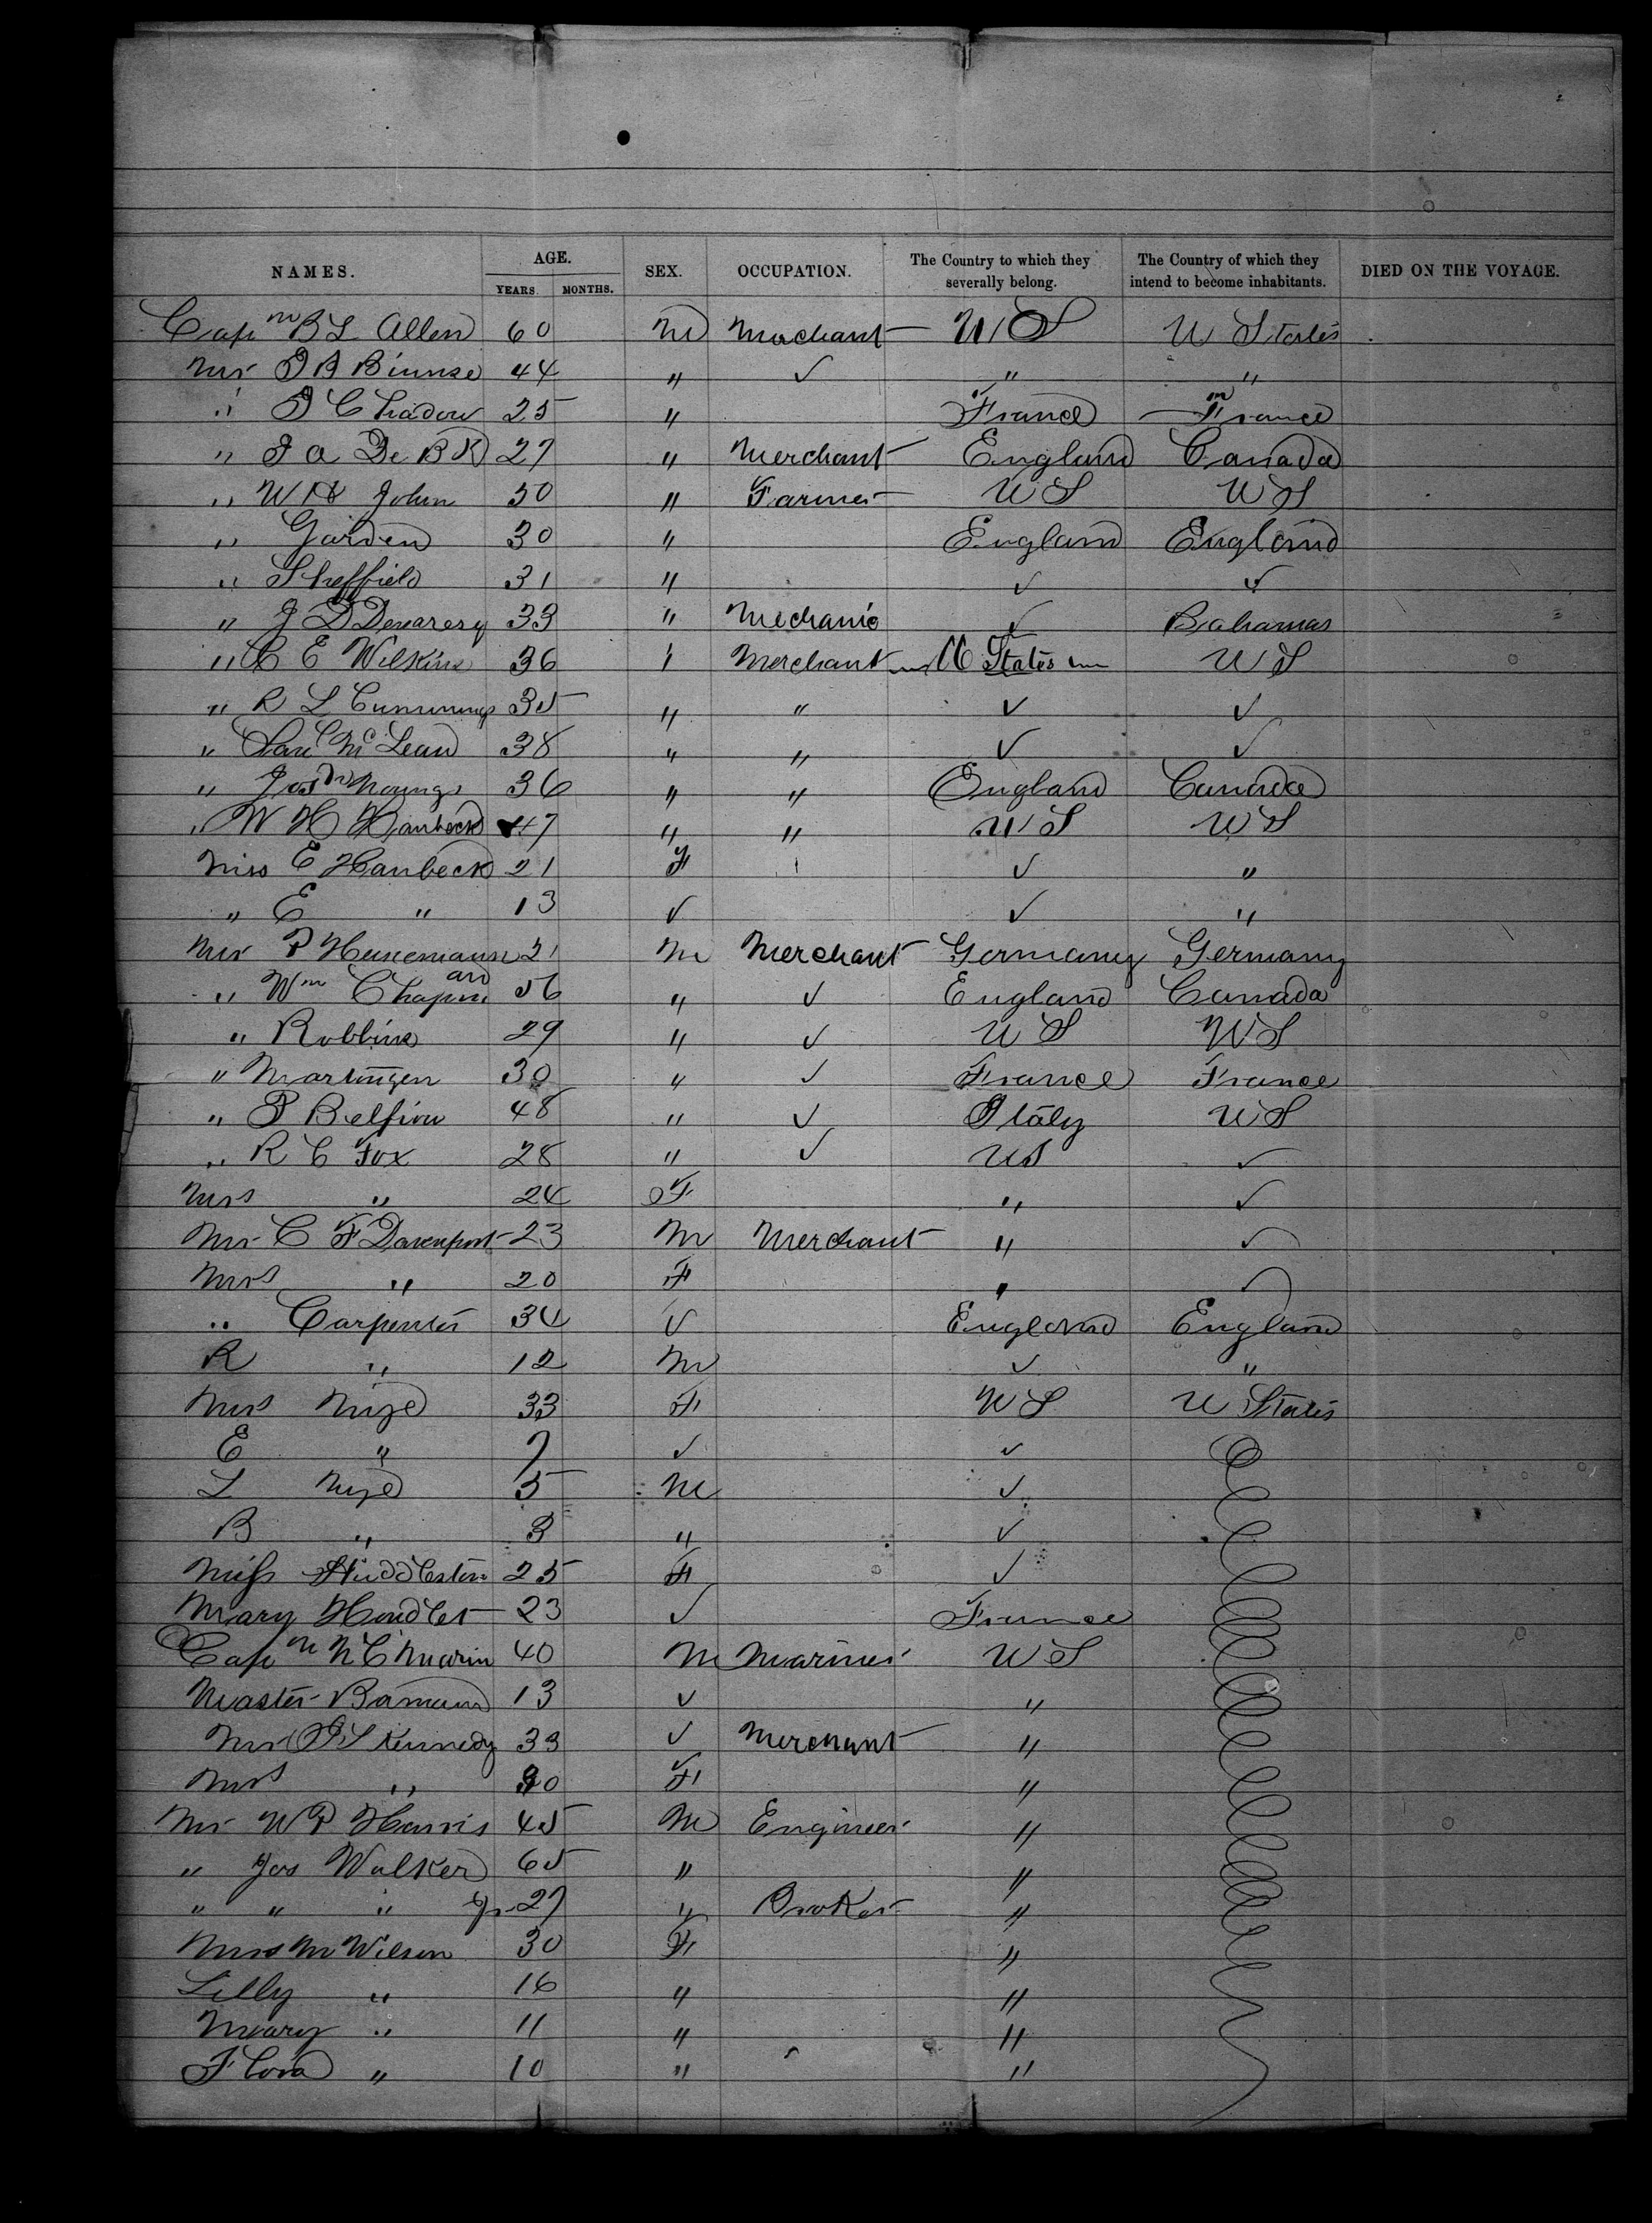 NAMES. AGE. SEX. OCCUPATION. The Country to which they severally belong. The Country of which they intend to become inhabitants. DIED ON THE VOYAGE.
YEARS. MONTHS.
Capm B L Allen 60 M Merchant U S U States
Mr Binnse 44 " ✓ " "
" 25 " France France
" J A De B K 27 " Merchant England Canada
" W H John 50 " Farmer U S U S
" Garden 30 " England England
" Sheffield 31 " ✓ ✓
" J D 33 " Mechanic ✓ Bahamas
" C E Wilkins 36 " Merchant U States U S
" R L Cummings 35 " " ✓ ✓
" McLean 38 " " ✓ ✓
" Jos Youngs 36 " " England Canada
" W H Hanbeck 47 " " U S U S
Miss E Hanbeck 21 F ✓ "
" E " 13 ✓ ✓ "
Mr P Hunemann 21 M Merchant Germany Germany
" Wm Chapman 56 " ✓ England Canada
" Robbins 29 " ✓ U S U S
" Martingen 30 " ✓ France France
" P Belfiore 48 " ✓ Italy U S
" R C Fox 28 " ✓ U S ✓
Mrs " 24 F " ✓
Mr C F Davenport 23 M Merchant " ✓
Mrs " 20 F " ✓
" Carpenter 34 ✓ England England
R " 12 M ✓ "
Mrs Mize 33 F U S U States
E " 7 ✓ ✓
L Mize 5 M ✓
B " 3 " ✓
Miss Huddleston 25 F ✓
Mary 23 ✓ France
Capm N C 40 M Mariner U S
Master 13 ✓ "
Mr J S Kennedy 33 ✓ Merchant "
Mrs " 30 F "
Mr W P Harris 45 M Engineer "
" Jos Walker 65 " "
" " " Jr 27 " Broker "
Mrs M Wilson 30 F "
Lilly " 16 " "
Mary " 11 " "
Flora " 10 " "